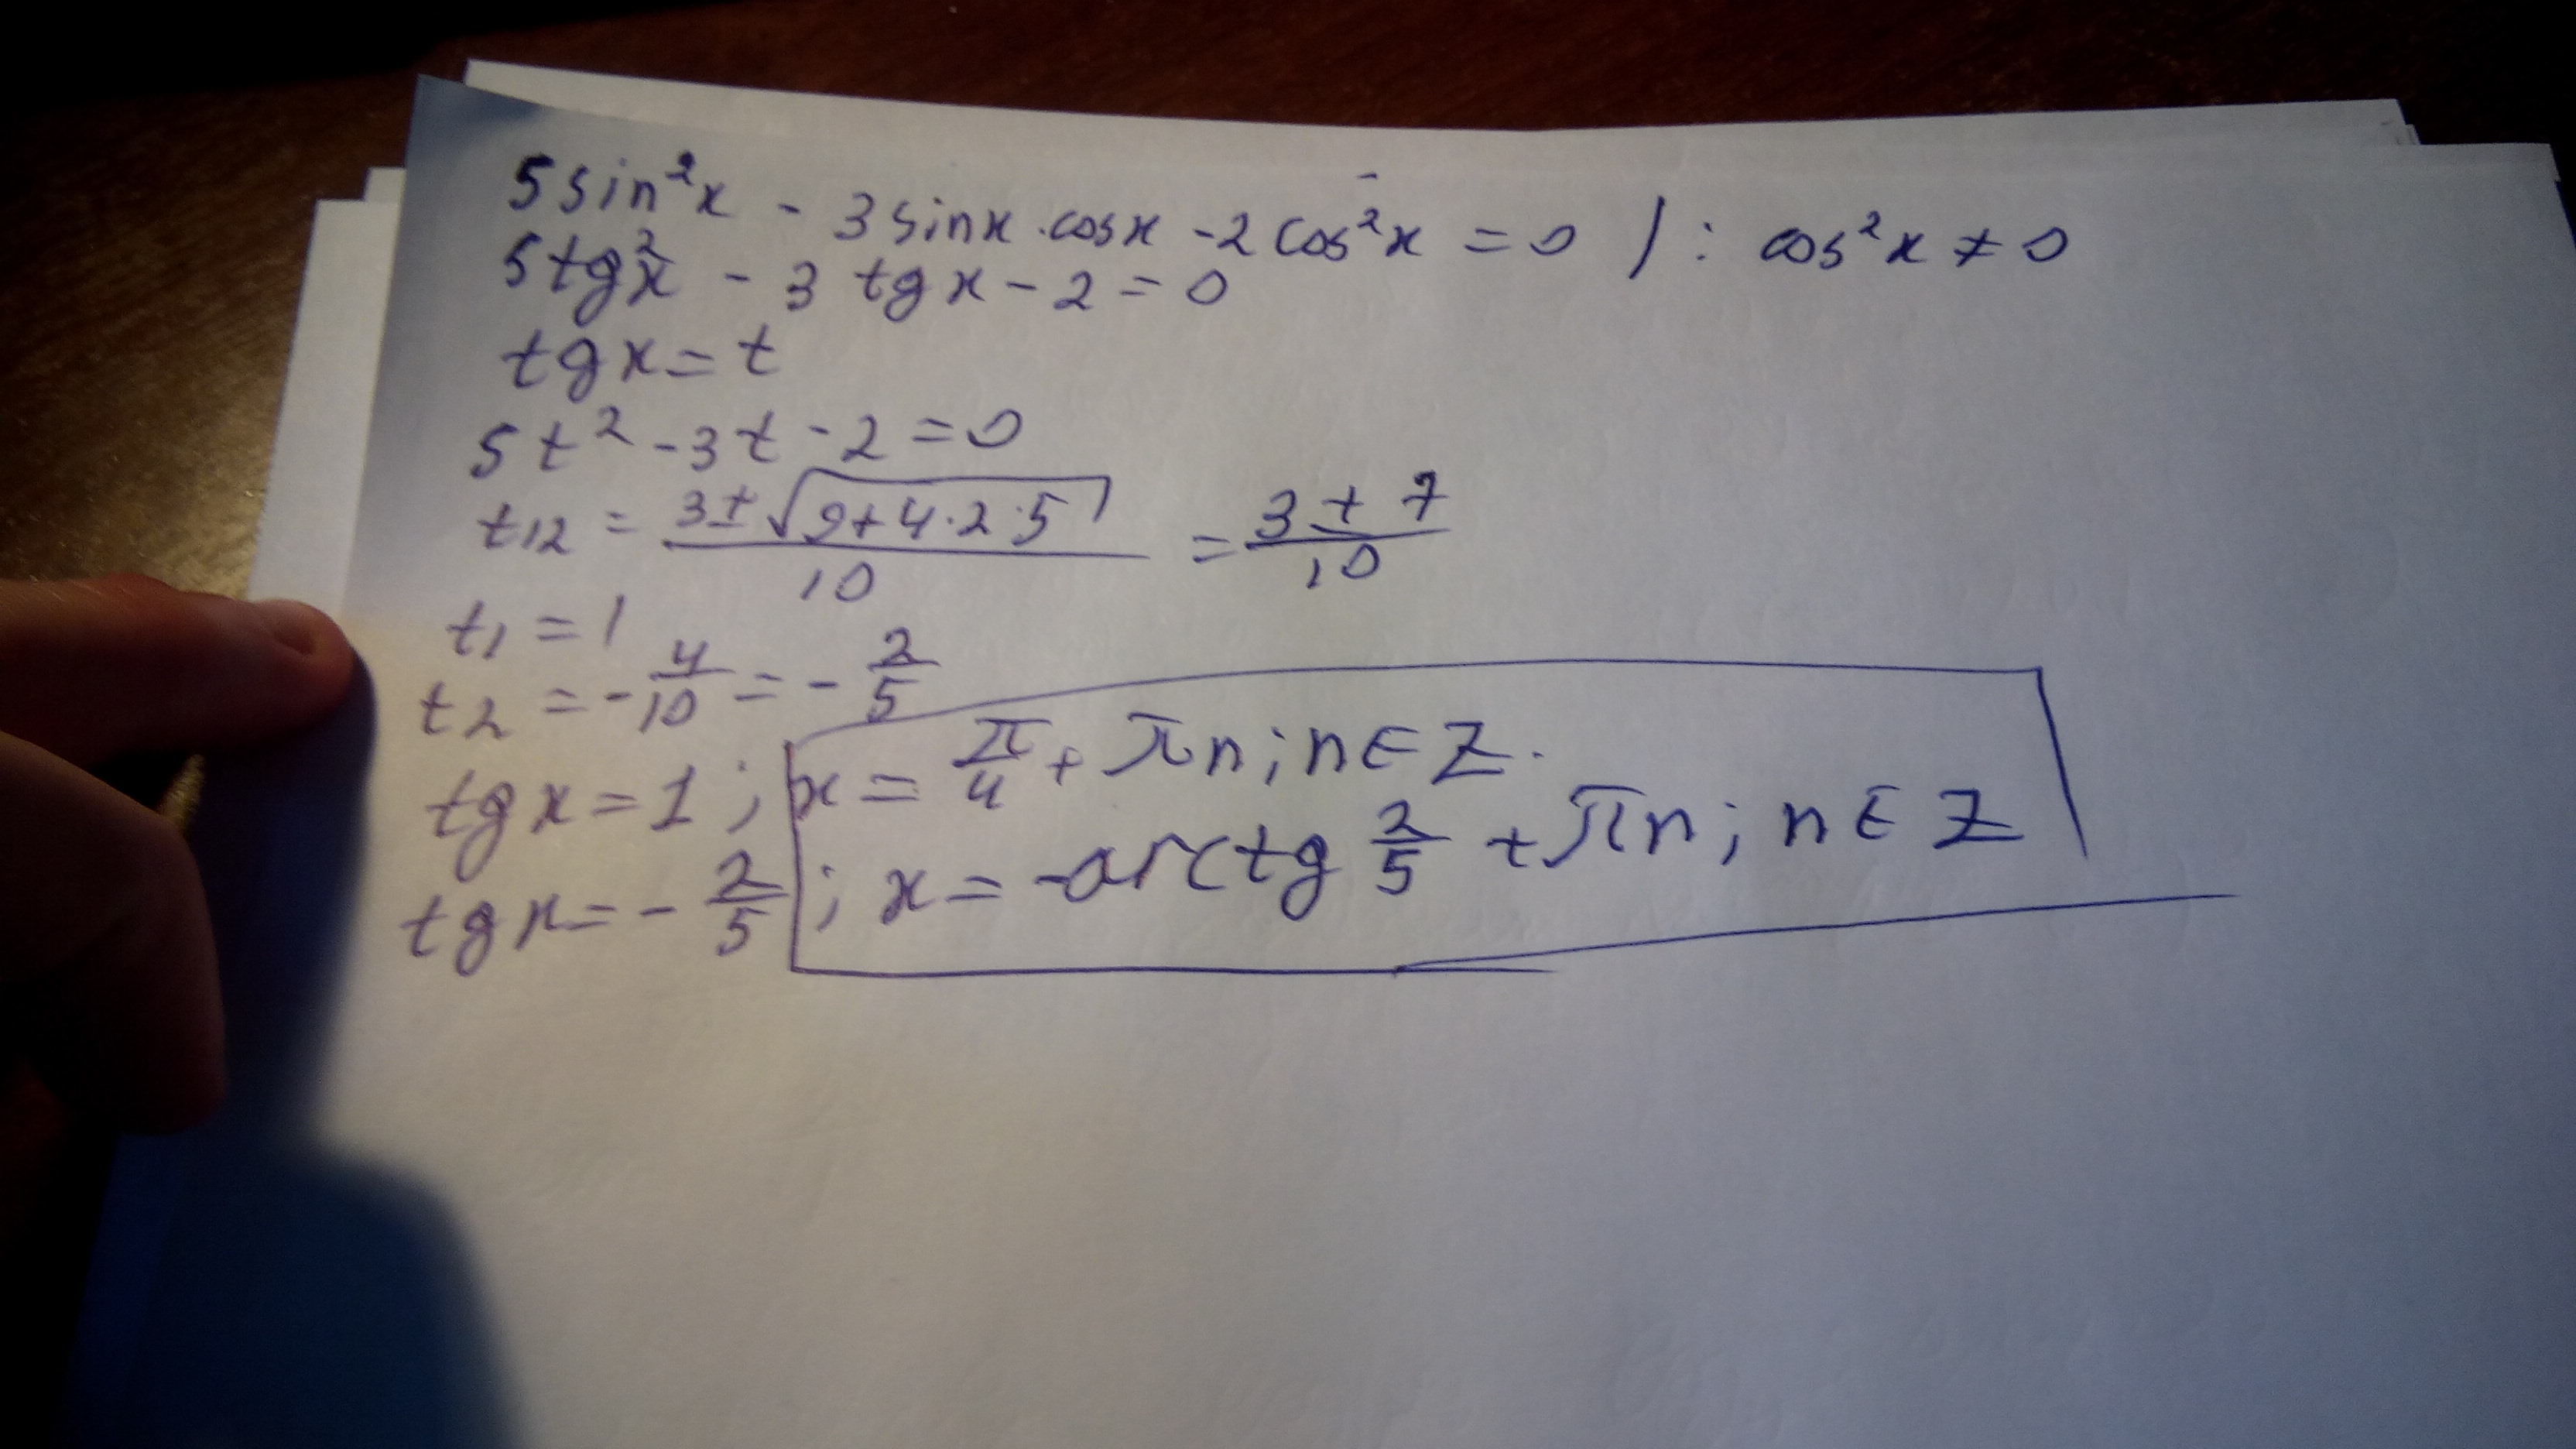 5sin²x - 3sinx·cosx - 2cos²x = 0 / : cos²x ≠ 0
5tg²x - 3tgx - 2 = 0
tgx = t
5t² - 3t - 2 = 0
t12 = (3±√(9+4·2·5))/10 = (3±7)/10
t1 = 1
t2 = -4/10 = -2/5
tgx = 1; x = π/4 + πn; n∈Z.
tgx = -2/5; x = -arctg 2/5 + πn; n∈Z